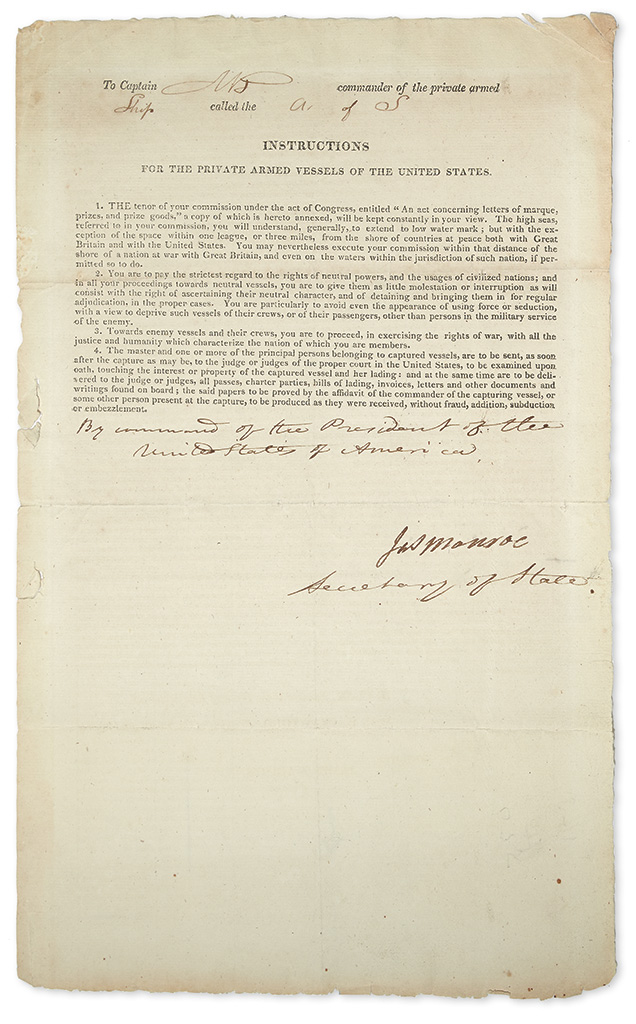 To Captain commander of the private armed
Ship called the A. of S
INSTRUCTIONS
FOR THE PRIVATE ARMED VESSELS OF THE UNITED STATES.
1. THE tenor of your commission under the act of Congress, entitled “ An act concerning letters of marque,
prizes, and prize goods,” a copy of which is hereto annexed, will be kept constantly in your view. The high seas,
referred to in your commission, you will understand, generally, to extend to low water mark ; but with the ex-
ception of the space within one league, or three miles, from the shore of countries at peace both with Great
Britain and with the United States. You may nevertheless execute your commission within that distance of the
shore of a nation at war with Great Britain, and even on the waters within the jurisdiction of such nation, if per-
mitted so to do.
2. You are to pay the strictest regard to the rights of neutral powers, and the usages of civilized nations; and
in all your proceedings towards neutral vessels, you are to give them as little molestation or interruption as will
consist with the right of ascertaining their neutral character, and of detaining and bringing them in for regular
adjudication, in the proper cases. You are particularly to avoid even the appearance of using force or seduction,
with a view to deprive such vessels of their crews, or of their passengers, other than persons in the military service
of the enemy.
3. Towards enemy vessels and their crews, you are to proceed, in exercising the rights of war, with all the
justice and humanity which characterize the nation of which you are members.
4. The master and one or more of the principal persons belonging to captured vessels, are to be sent, as soon
after the capture as may be, to the judge or judges of the proper court in the United States, to be examined upon
oath, touching the interest or property of the captured vessel and her lading : and at the same time are to be deli-
vered to the judge or judges, all passes, charter parties, bills of lading, invoices, letters and other documents and
writings found on board ; the said papers to be proved by the affidavit of the commander of the capturing vessel, or
some other person present at the capture, to be produced as they were received, without fraud, addition, subduction
or embezzlement.
By command of the President of the
United States of America.
Jas Monroe
Secretary of State.